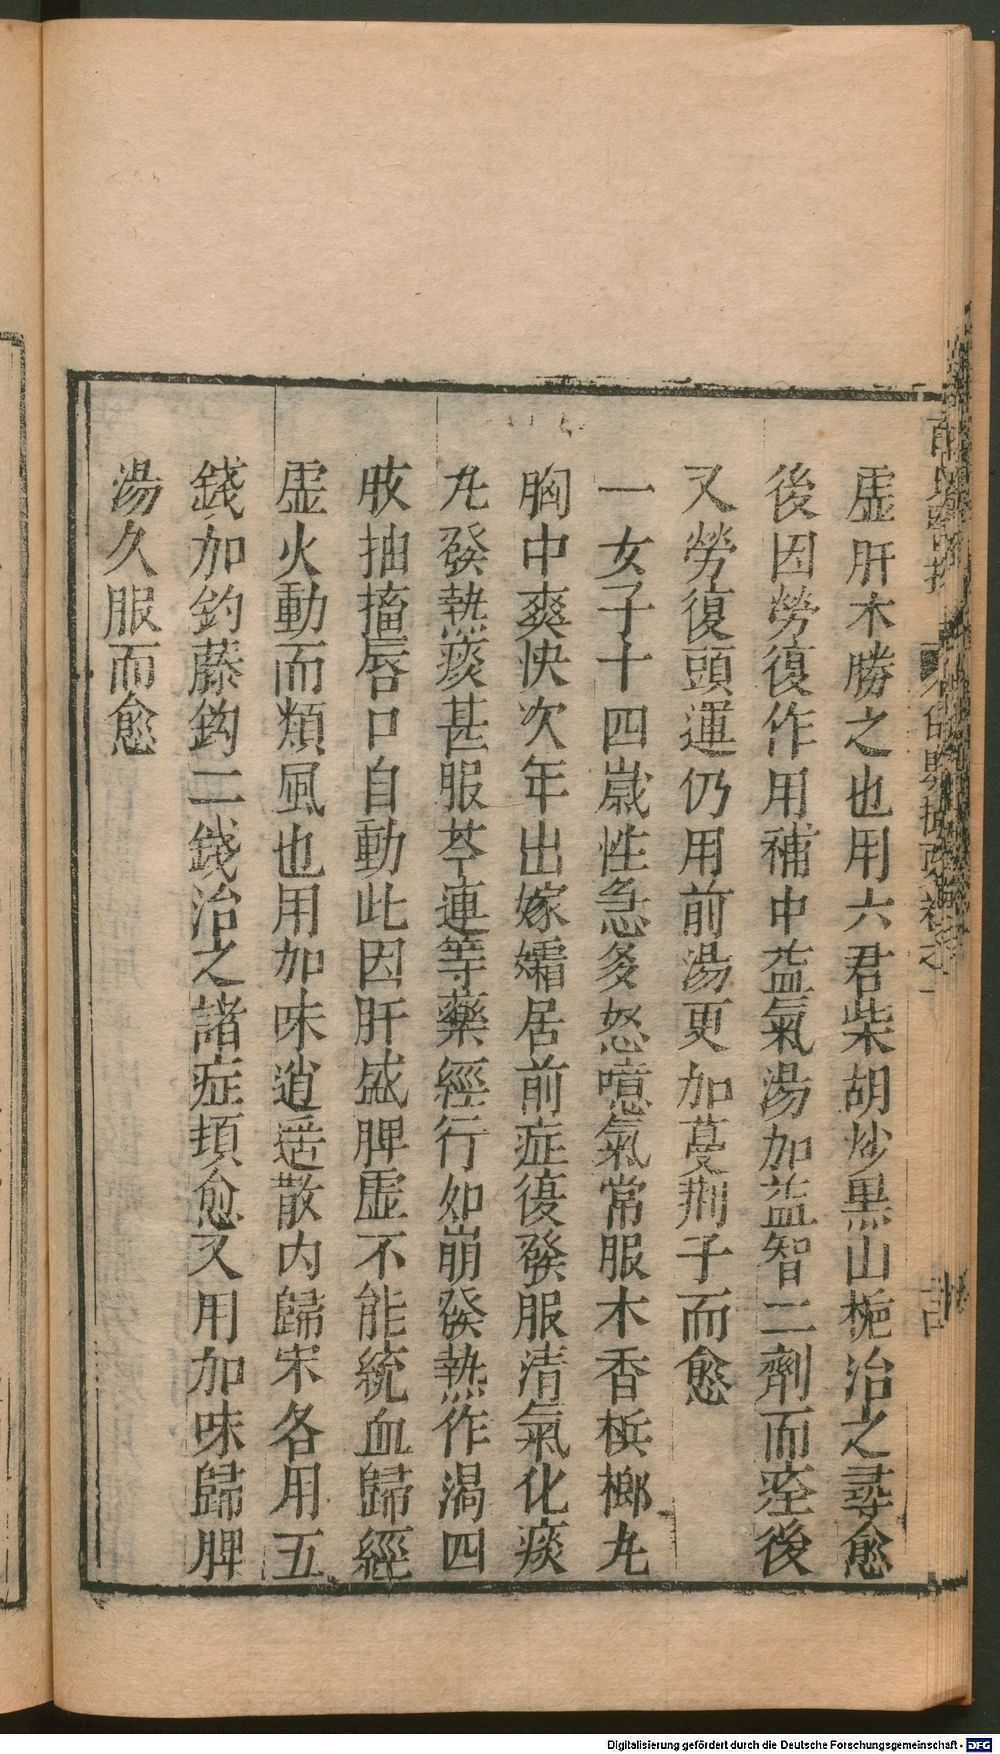 虛肝木勝之也用六君柴胡炒黑山梔治之尋愈
後因勞復作用補中益氣湯加益智二劑而痊後
又勞復頭運仍用前湯更加蔓荆子而愈
一女子十四嵗性急多怒噫氣常服木香梹榔丸
胸中爽快次年出嫁孀居前症復發服清氣化痰
丸發熱痰甚服芩連等藥經行如崩發熱作渴四
肢抽搐唇口自動此因肝盛脾虛不能統血歸經
虛火動而類風也用加味逍遥散内歸宋各用五
錢加釣藤鈎二錢治之諸症頓愈又用加味歸脾
湯久服而愈
Digitalisierung gefördert durch die Deutsche Forschungsgemeinschaft - DFG